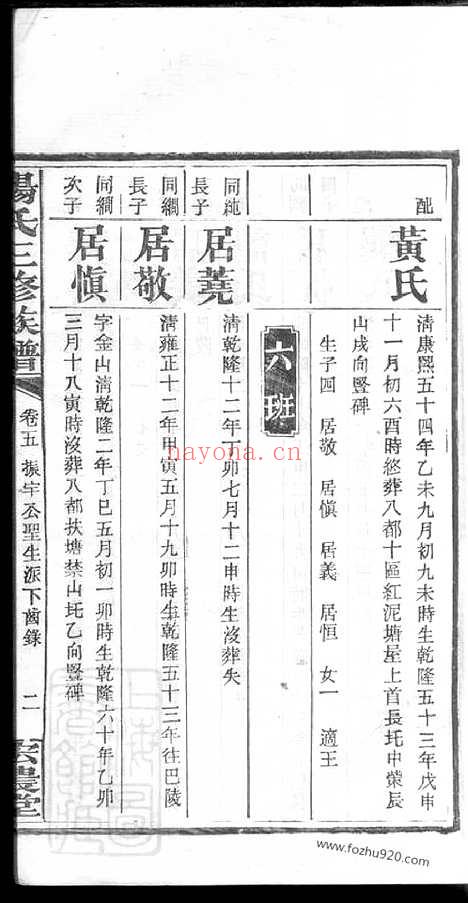 配
黃氏
清康熙五十四年乙未九月初九未時生乾隆五十三年戊申
十一月初六酉時終葬八都十區紅泥塘屋上首長圫申榮辰
山戌向豎碑
生子四 居敬 居慎 居義 居恒 女一 適王
六班
同純
長子
居蕘
清乾隆十二年丁卯七月十二申時生沒葬失
同綱
長子
居敬
清雍正十二年甲寅五月十九卯時生乾隆五十三年往巴陵
同綱
次子
居慎
字金山清乾隆二年丁巳五月初一卯時生乾隆六十年乙卯
三月十八寅時沒葬八都扶塘禁山圫乙向豎碑
楊氏三修族譜
卷五 振宇公聖生派下齒錄
二
上海圖
hayona.cn
www.fozhu920.com